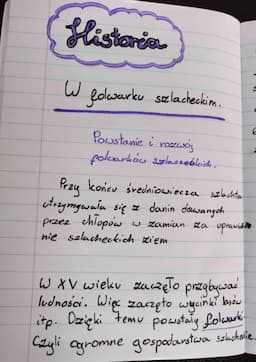 Historia
W folwarku szlacheckim.
Powstanie i rozwój
folwarków szlacheckich.
Przy końcu średniowiecza szlachta
utrzymywała się z danin dawanych
przez chłopów w zamian za uprawianie
nie szlacheckich ziem
W XV wieku zaczęło przybywać
ludności. Więc zaczęto wycinki lasów
itp. Dzięki temu powstały folwarki
Czyli ogromne gospodarstwa szlacheckie.